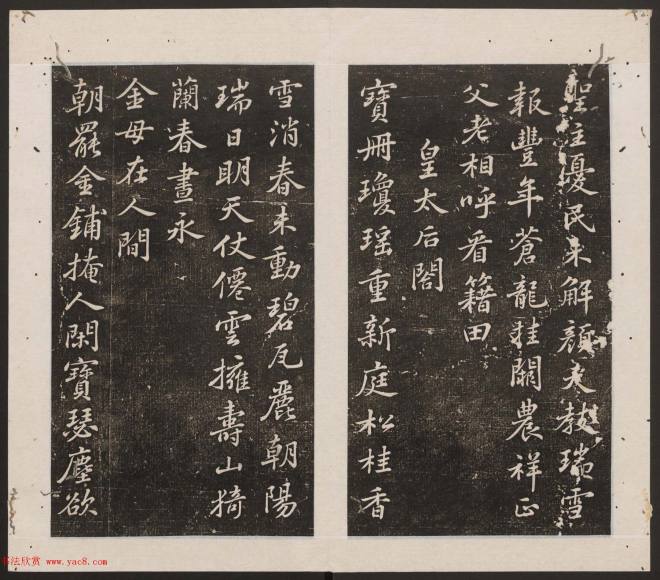 聖主憂民未解顏天教瑞雪
報豐年蒼龍挂闕農祥正
父老相呼看籍田
皇太后閤
寶冊瓊瑶重新庭松桂香
雪消春未動碧瓦麗朝陽
瑞日明天仗僊雲擁壽山猗
蘭春晝永
金母在人間
朝罷金鋪掩人閑寶瑟塵欲
书法欣赏 www.yac8.com